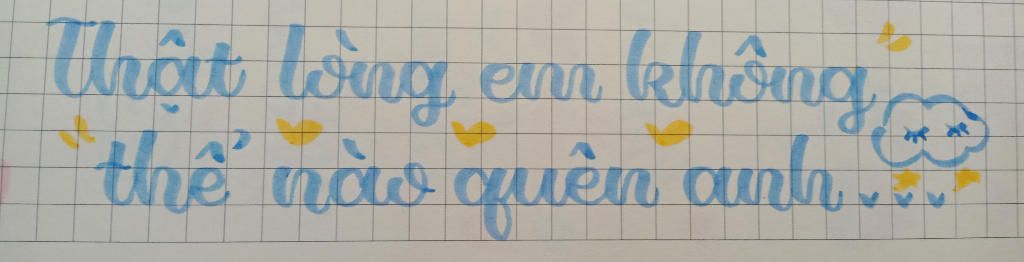 Thật lòng em không
thế nào quên anh